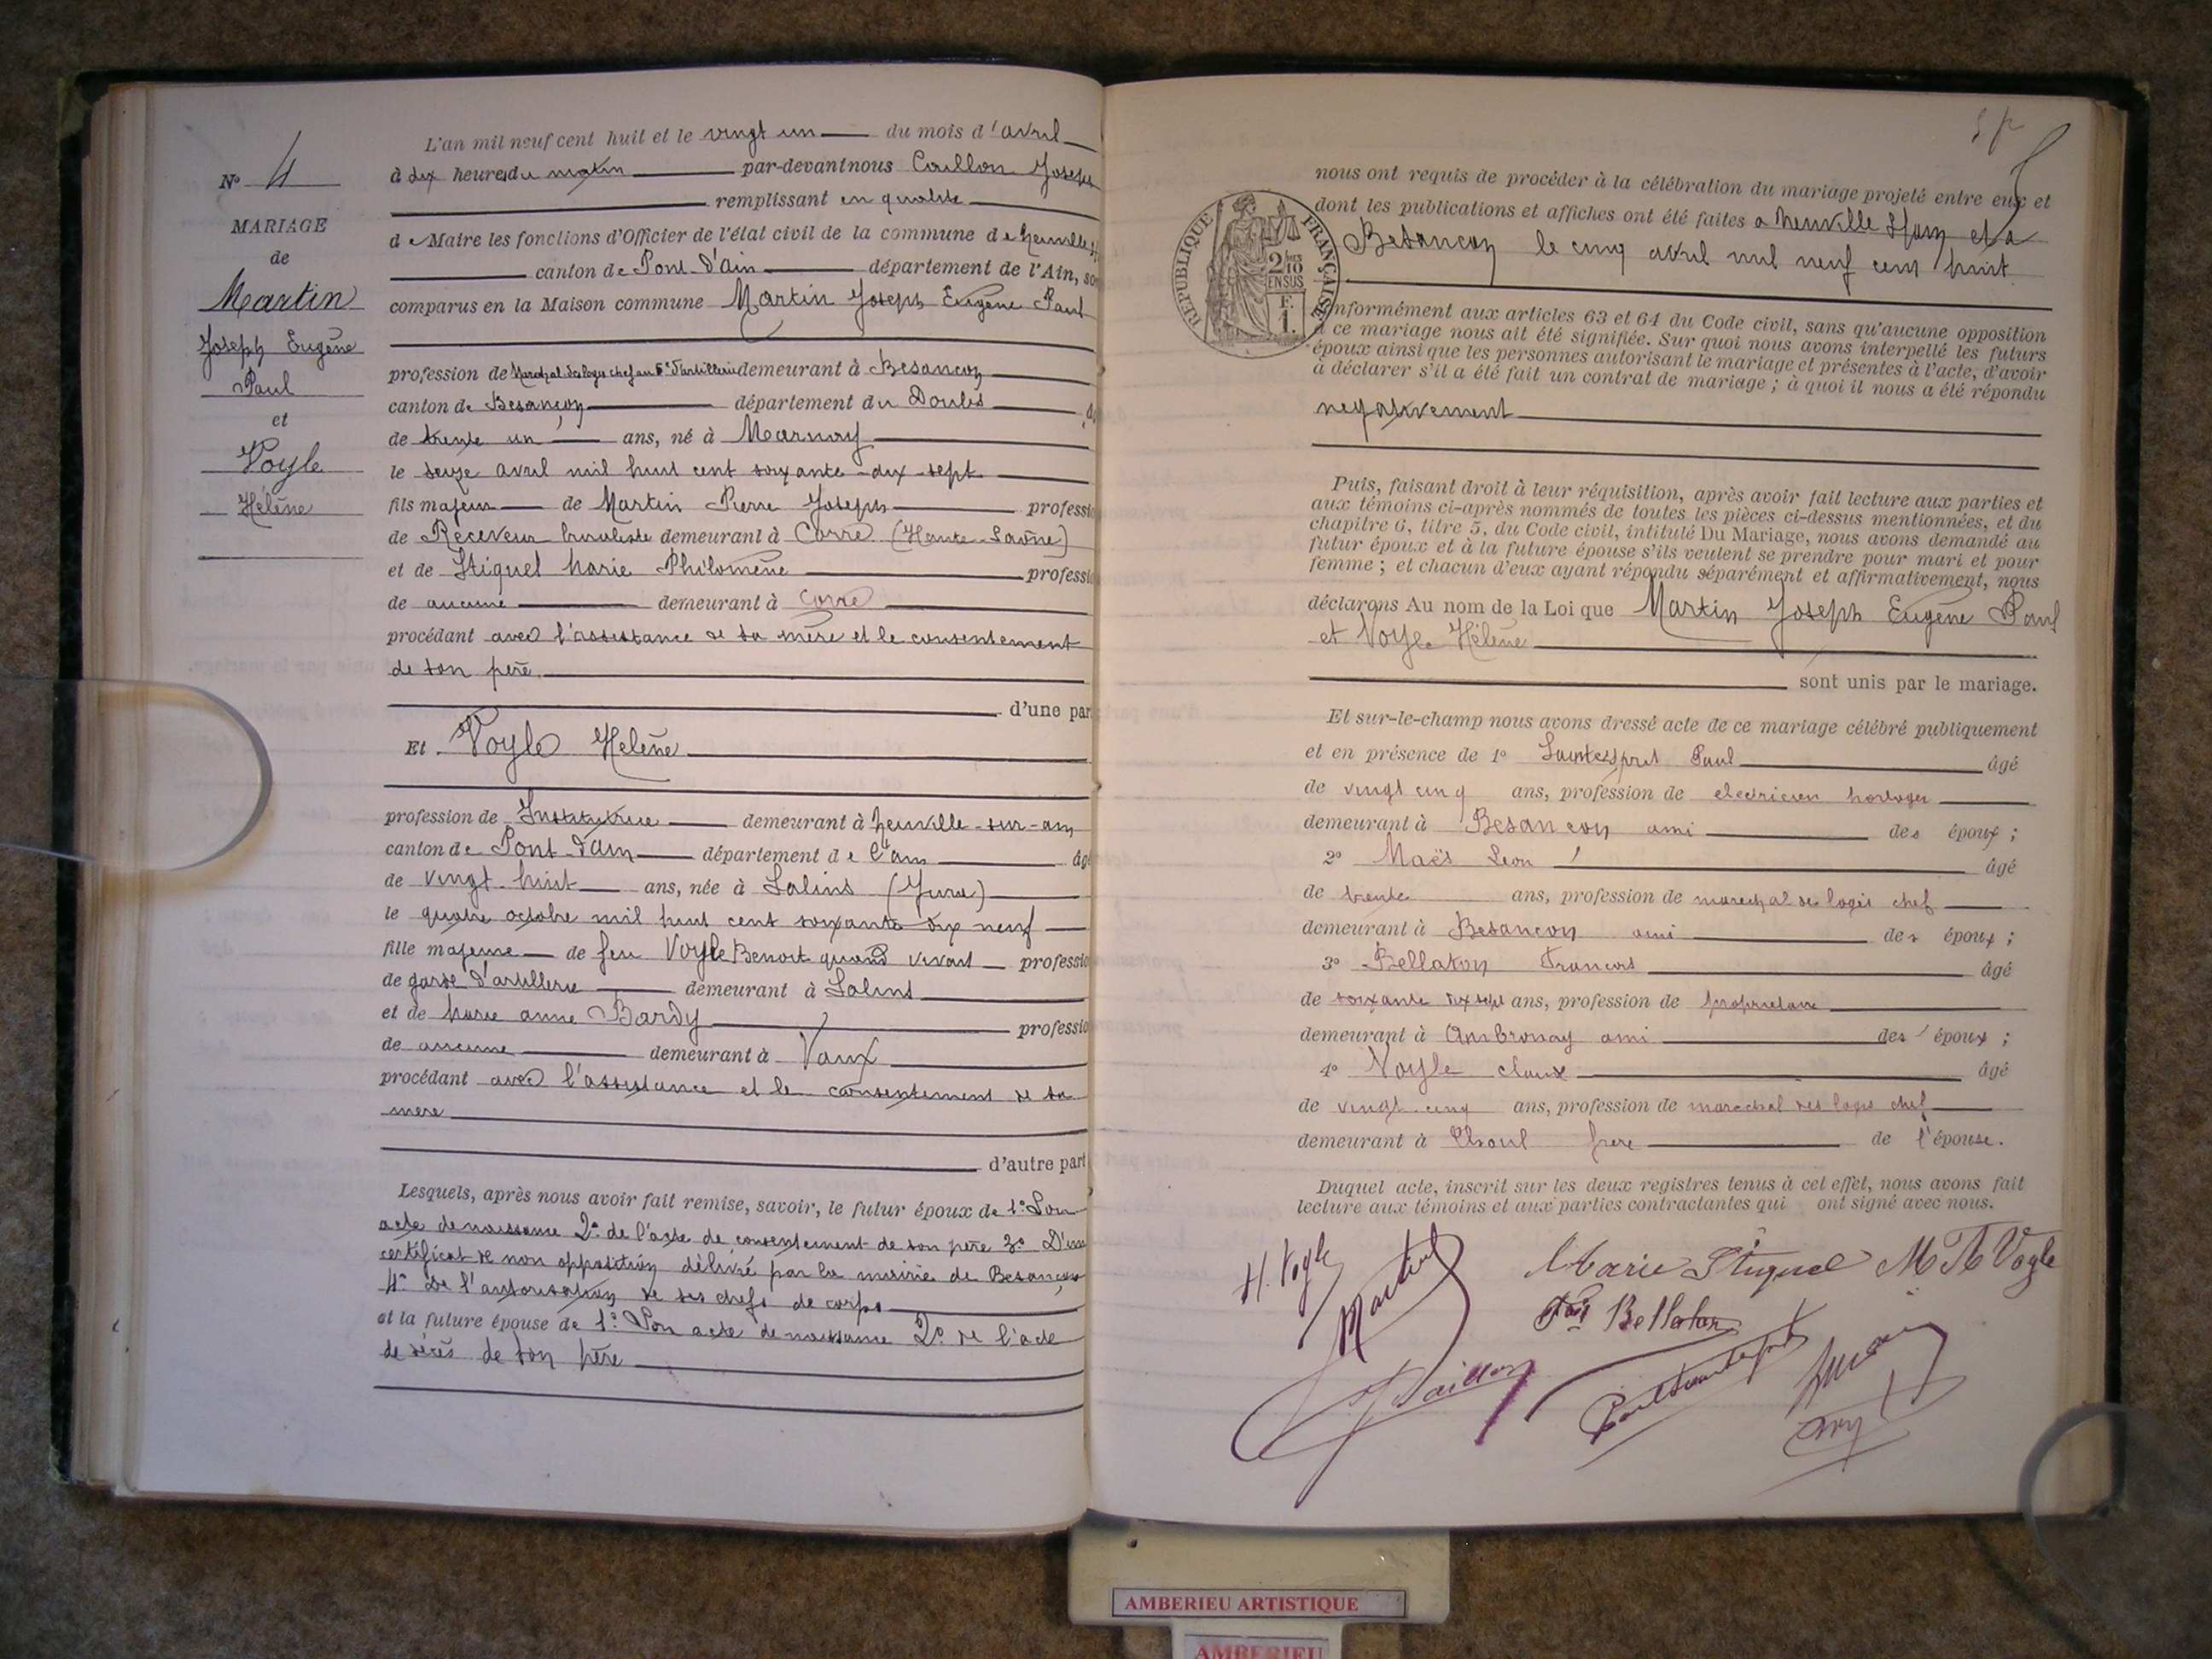 L'an mil neuf cent huit et le vingt un du mois d'avril
à dix heures du matin par-devant nous Caillon Joseph
remplissant en qualité
de Maire les fonctions d'Officier de l'état civil de la commune de Neuville s/
canton de Pont-d'Ain département de l'Ain, so
comparus en la Maison commune Martin Joseph Eugène Paul
profession de Marechal des logis chef au 5e d'artillerie demeurant à Besançon
canton de Besançon département du Doubs
de trente un ans, né à Marnay
le seize avril mil huit cent soixante-dix-sept
fils majeur de Martin Pierre Joseph professi
de Receveur buraliste demeurant à Corre (Haute-Saône)
et de Stiquel Marie Philomène professi
de aucune demeurant à Corre
procédant avec l'assistance de sa mère et le consentement
de son père.
d'une par
Et Voyle Hélène
profession de Institutrice demeurant à Neuville-sur-ain
canton de Pont-d'ain département de l'ain âgé
de vingt-huit ans, née à Salins (Jura)
le quatre octobre mil huit cent soixante dix neuf
fille majeure de feu Voyle Benoit quand vivant professio
de garde d'artillerie demeurant à Salins
et de Marie anne Bardy professio
de aucune demeurant à Vaux
procédant avec l'assistance et le consentement de sa
mère
d'autre part
Lesquels, après nous avoir fait remise, savoir, le futur époux de 1º Son
acte de naissance 2º de l'acte de consentement de son père 3º D'un
certificat de non opposition délivré par la mairie de Besançon
4º De l'autorisation de ses chefs de corps
et la future épouse de 1º Son acte de naissance 2º de l'acte
de décès de son père
Nº 4
MARIAGE
de
Martin
Joseph Eugène
Paul
et
Voyle
Hélène
nous ont requis de procéder à la célébration du mariage projeté entre eux et
dont les publications et affiches ont été faites a Neuville s/ain et a
Besançon le cinq avril mil neuf cent huit
conformément aux articles 63 et 64 du Code civil, sans qu'aucune opposition
à ce mariage nous ait été signifiée. Sur quoi nous avons interpellé les futurs
époux ainsi que les personnes autorisant le mariage et présentes à l'acte, d'avoir
à déclarer s'il a été fait un contrat de mariage ; à quoi il nous a été répondu
negativement
Puis, faisant droit à leur réquisition, après avoir fait lecture aux parties et
aux témoins ci-après nommés de toutes les pièces ci-dessus mentionnées, et du
chapitre 6, titre 5, du Code civil, intitulé Du Mariage, nous avons demandé au
futur époux et à la future épouse s'ils veulent se prendre pour mari et pour
femme ; et chacun d'eux ayant répondu séparément et affirmativement, nous
déclarons Au nom de la Loi que Martin Joseph Eugène Paul
et Voyle Hélène
sont unis par le mariage.
Et sur-le-champ nous avons dressé acte de ce mariage célébré publiquement
et en présence de 1º Saintesprit Paul âgé
de vingt cinq ans, profession de electricien horloger
demeurant à Besancon ami des époux ;
2º Maës Leon âgé
de trente ans, profession de marechal des logis chef
demeurant à Besancon ami des époux ;
3º Bellaton Francois âgé
de soixante dix sept ans, profession de proprietaire
demeurant à Ambronay ami des époux ;
4º Voyle claude âgé
de vingt cinq ans, profession de marechal des logis chef
demeurant à frere de l'épouse.
Duquel acte, inscrit sur les deux registres tenus à cet effet, nous avons fait
lecture aux témoins et aux parties contractantes qui ont signé avec nous.
H. Voyle Martin Marie Stiquel Voyle
Bellaton
J Caillon Paul Saintesprit
RÉPUBLIQUE FRANÇAISE
2/10
EN SUS
F.
1.
AMBERIEU ARTISTIQUE
AMBERIEU